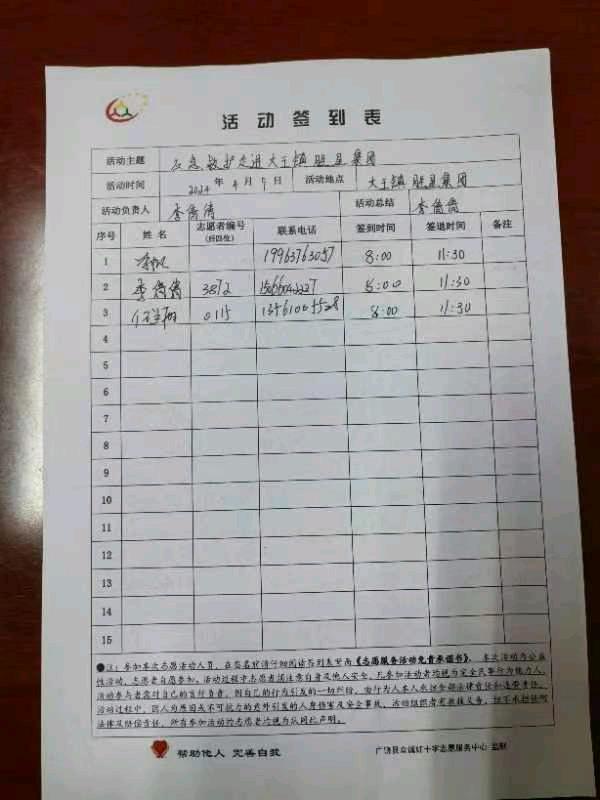 活动签到表
活动主题 应急救护走进大王镇胜星集团
活动时间 2024年4月7日 活动地点 大王镇胜星集团
活动负责人 李倩倩 活动总结 李倩倩
序号 姓名 志愿者编号(后四位) 联系电话 签到时间 签退时间 备注
1 19963763057 8:00 11:30
2 李倩倩 3812 8:00 11:30
3 0115 8:00 11:30
4
5
6
7
8
9
10
11
12
13
14
15
●注:参加本次志愿活动人员,在签名前请仔细阅读签到表背面《志愿服务活动免责承诺书》。本次活动为公益
性活动,志愿者自愿参加,活动过程中志愿者须注意自身及他人安全。凡参加活动者均视为完全民事行为能力人,
活动参与者需对自己的言行负责,因自己的行为引发的一切纠纷,由行为人本人承担全部法律责任和连带责任。
活动过程中,因人为原因或不可抗力的意外引发的人身伤害及安全事故,活动组织者有救援义务,但不承担任何
法律及赔偿责任。所有参加活动的志愿者均视为认同此声明。
帮助他人 完善自我
广饶县众诚红十字志愿服务中心 监制